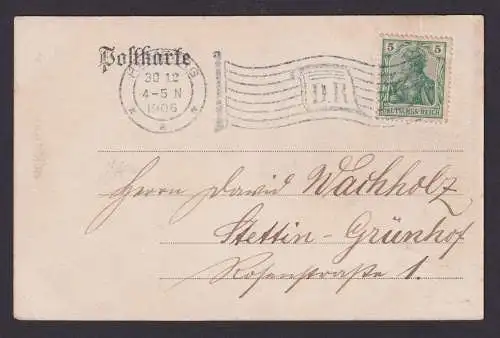 Postkarte
30 12
4-5 N
1906
D R
5 5
DEUTSCHES REICH
Herrn David Wachholz
Stettin-Grünhof
Rosenstraße 1.